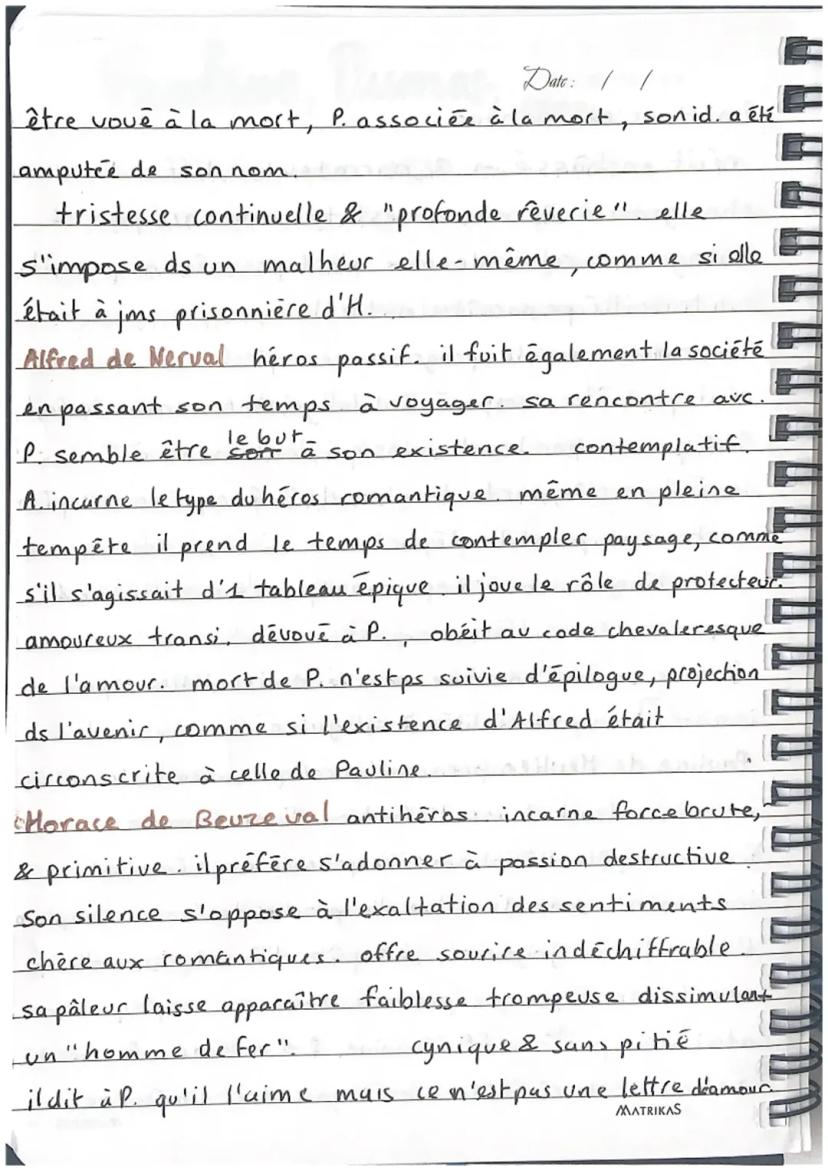 Date: / /
être voué à la mort, P. associée à la mort, son id. a été
amputée de son nom.
tristesse continuelle & "profonde rêverie". elle
s'impose ds un malheur elle-même, comme si elle
était à jms prisonnière d'H.
Alfred de Nerval héros passif. il fuit également la société
en passant son temps à voyager. sa rencontre avc.
le but
P. semble être son à son existence. contemplatif.
A. incarne le type du héros romantique. même en pleine
tempête il prend le temps de contempler paysage, comme
s'il s'agissait d'1 tableau épique. il joue le rôle de protecteur.
amoureux transi, dévoué à P., obéit au code chevaleresque
de l'amour. mort de P. n'est ps suivie d'épilogue, projection
ds l'avenir, comme si l'existence d'Alfred était
circonscrite à celle de Pauline.
Horace de Beuzeval antihéros. incarne force brute,
& primitive. il préfère s'adonner à passion destructive.
Son silence s'oppose à l'exaltation des sentiments
chère aux romantiques. offre sourire indéchiffrable.
sa pâleur laisse apparaître faiblesse trompeuse dissimulant
un "homme de fer". cynique & sans pitié
il dit à P. qu'il l'aime mais ce n'est pas une lettre d'amour
MATRIKAS